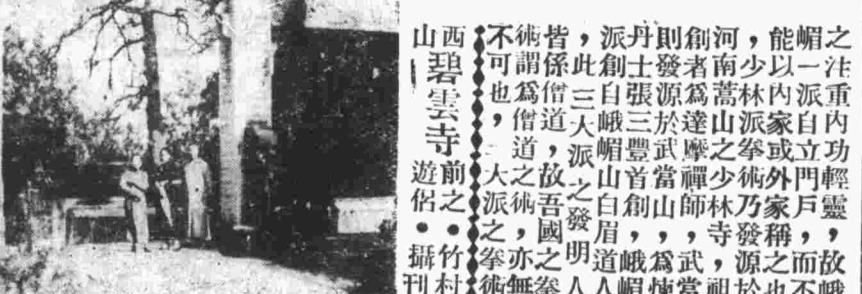 之注重內功輕靈，故峨
嵋一派自立門戶，而不
能以內家或外家稱之也
，少林派拳術乃發源於
河南蒿山之少林寺，祖
創者爲達摩禪師，武當
則發源於武當山，爲煉
丹士張三豐首創，峨嵋
派創自峨嵋山白眉道人
，此三大派之發明人
皆係僧道，故吾國之拳
術謂爲僧道之術，亦無
不可也，大派之拳術
西山碧雲寺前之•竹村
遊侶•攝刊